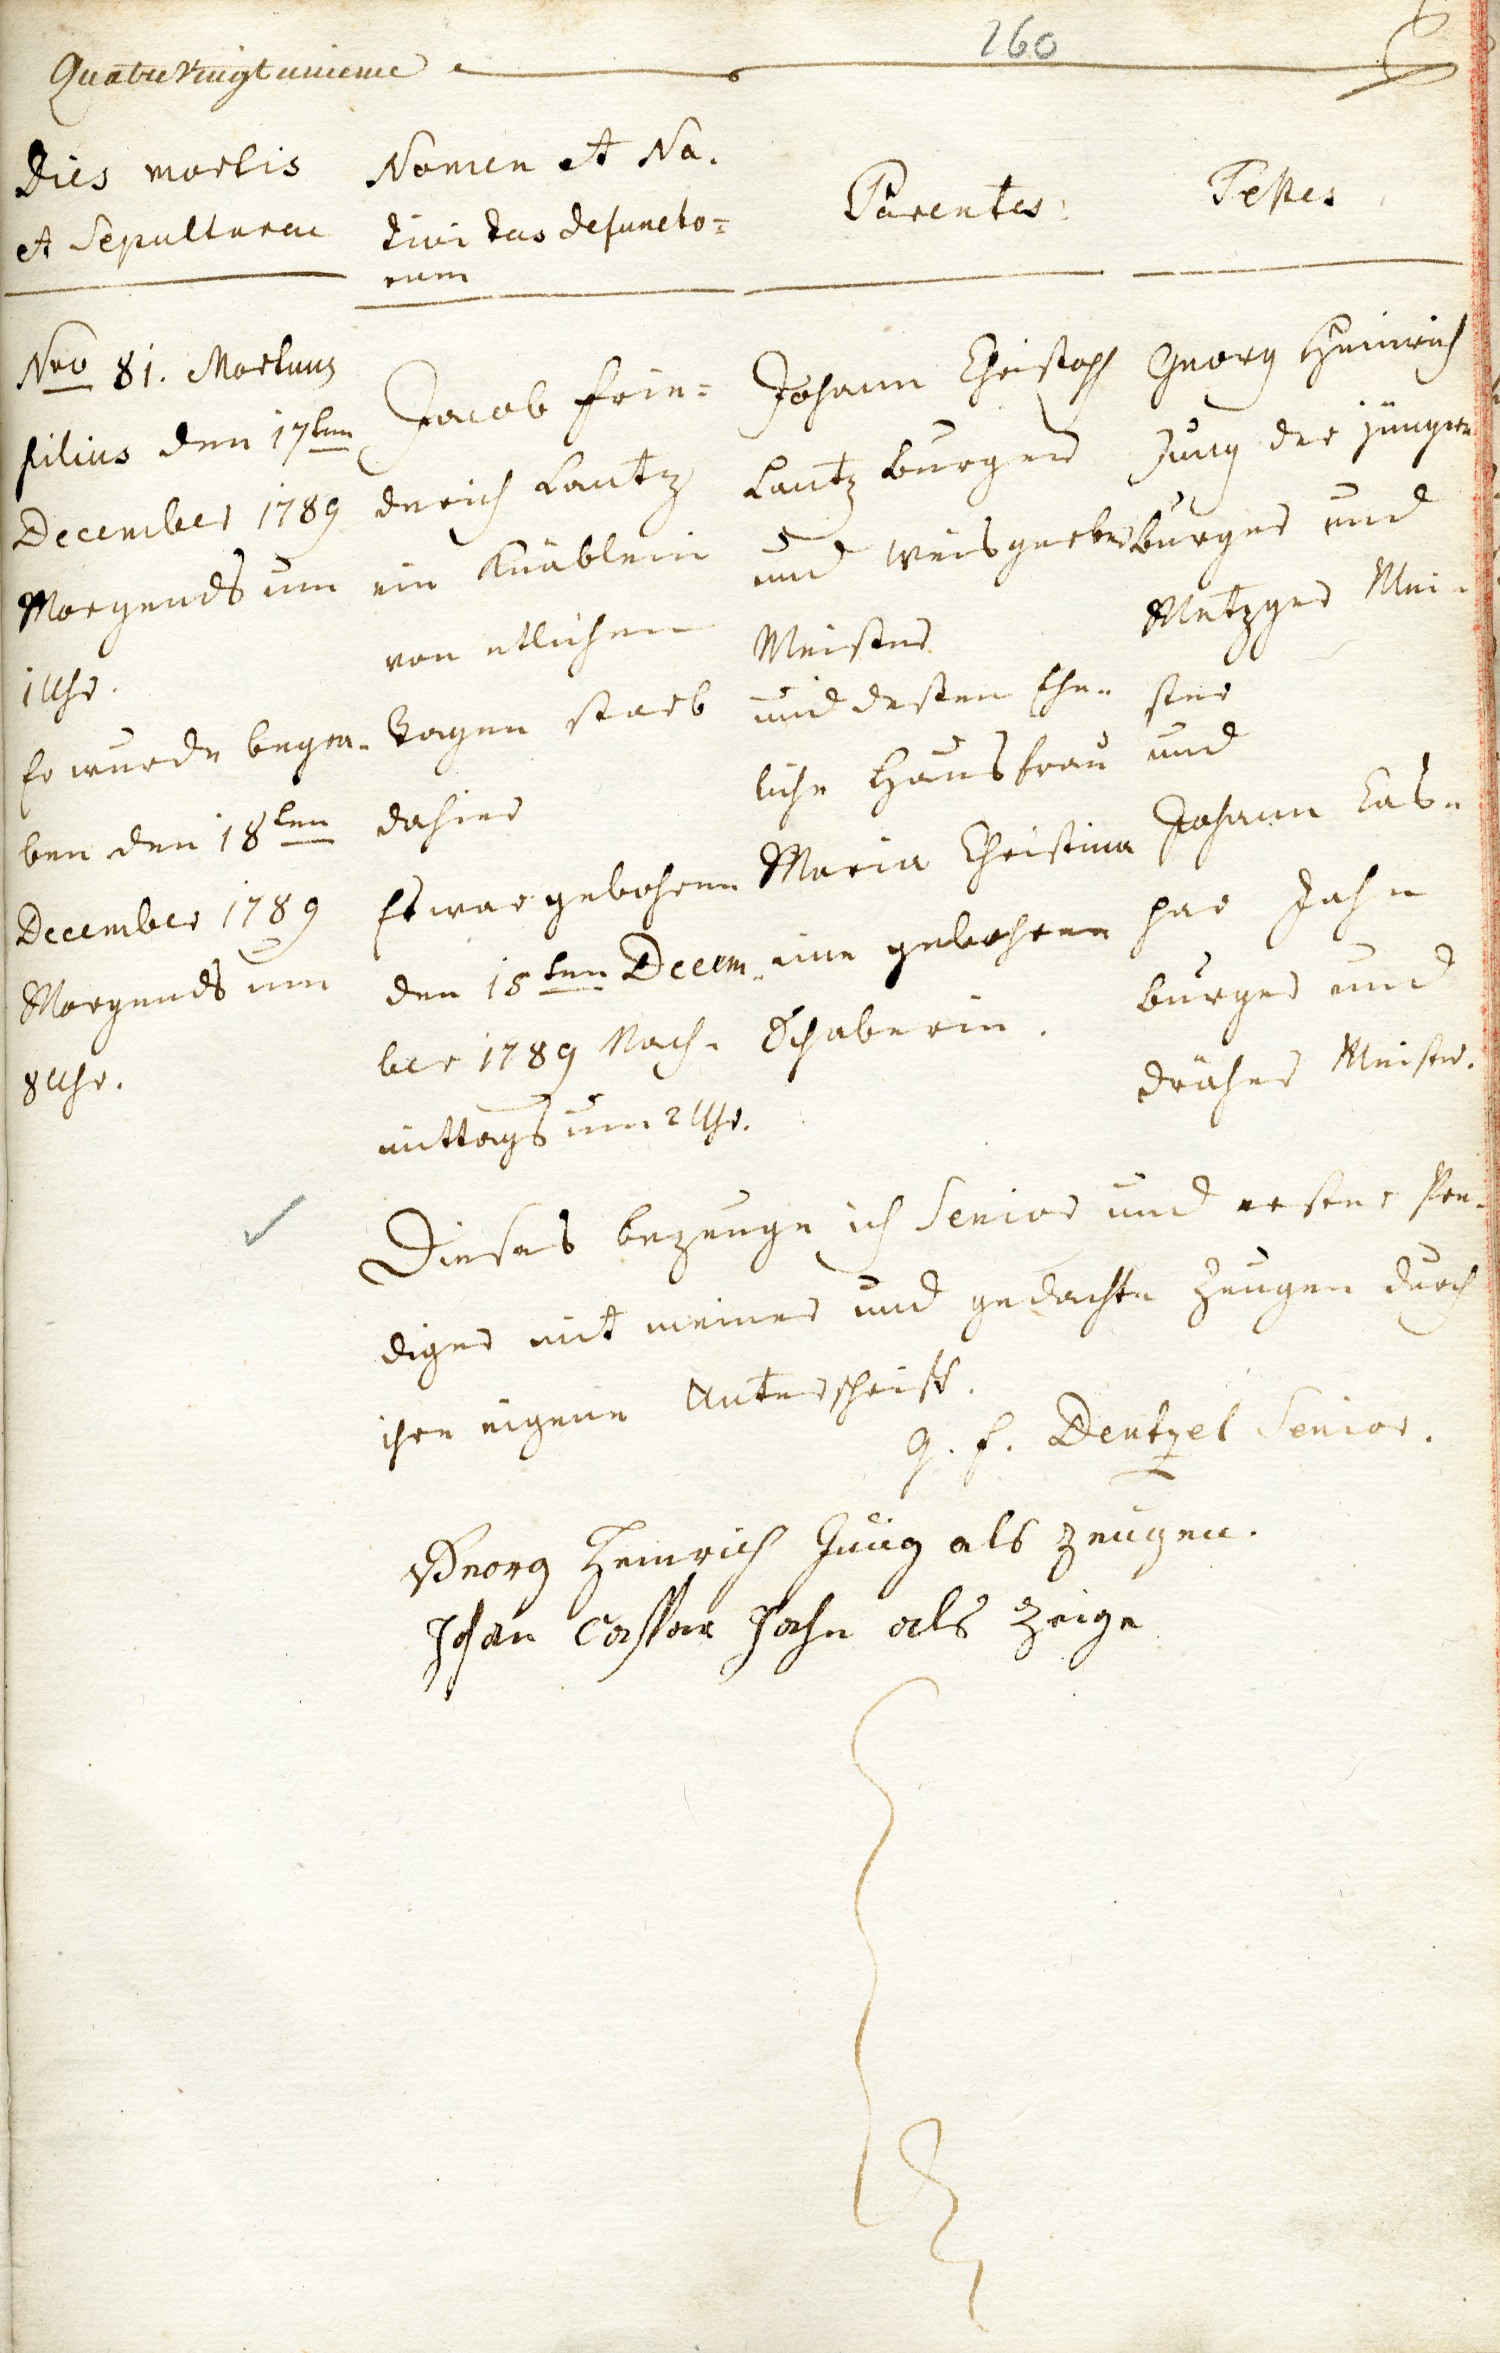 260
Quatrevingt unieme
Dies mortis
et Sepulturae
Nomen et Na-
tivitas defuncto=
rum
Parentes
Testes
Nro 81. Mortuus
filius den 17ten
December 1789
Morgends um
1 Uhr.
Er wurde begra-
ben den 18ten
December 1789
Morgends um
8 Uhr.
Jacob Frie=
derich Lantz
ein Knäblein
von etlichen
Tagen starb
dahier
Es war gebohren
den 15ten Decem-
ber 1789 Nach-
mittags um 2 Uhr.
Johann Christoph
Lantz burger
und Weisgerber
Meister
und dessen Ehe-
liche Hausfrau
Maria Christina
eine gebohrene
Schaberin.
Georg Heinrich
Jung der jüngere
burger und
Metzger Mei-
ster
und
Johann Cas-
par Jahn
burger und
dräher Meister.
Dieses bezeuge ich Senior und erster Pre-
diger mit meiner und gedachte Zeugen durch
ihre eigene Unterschrift.
G. F. Dentzel Senior.
Georg Heinrich Jung als zeugen.
Johan Casspar Jahn als zeige